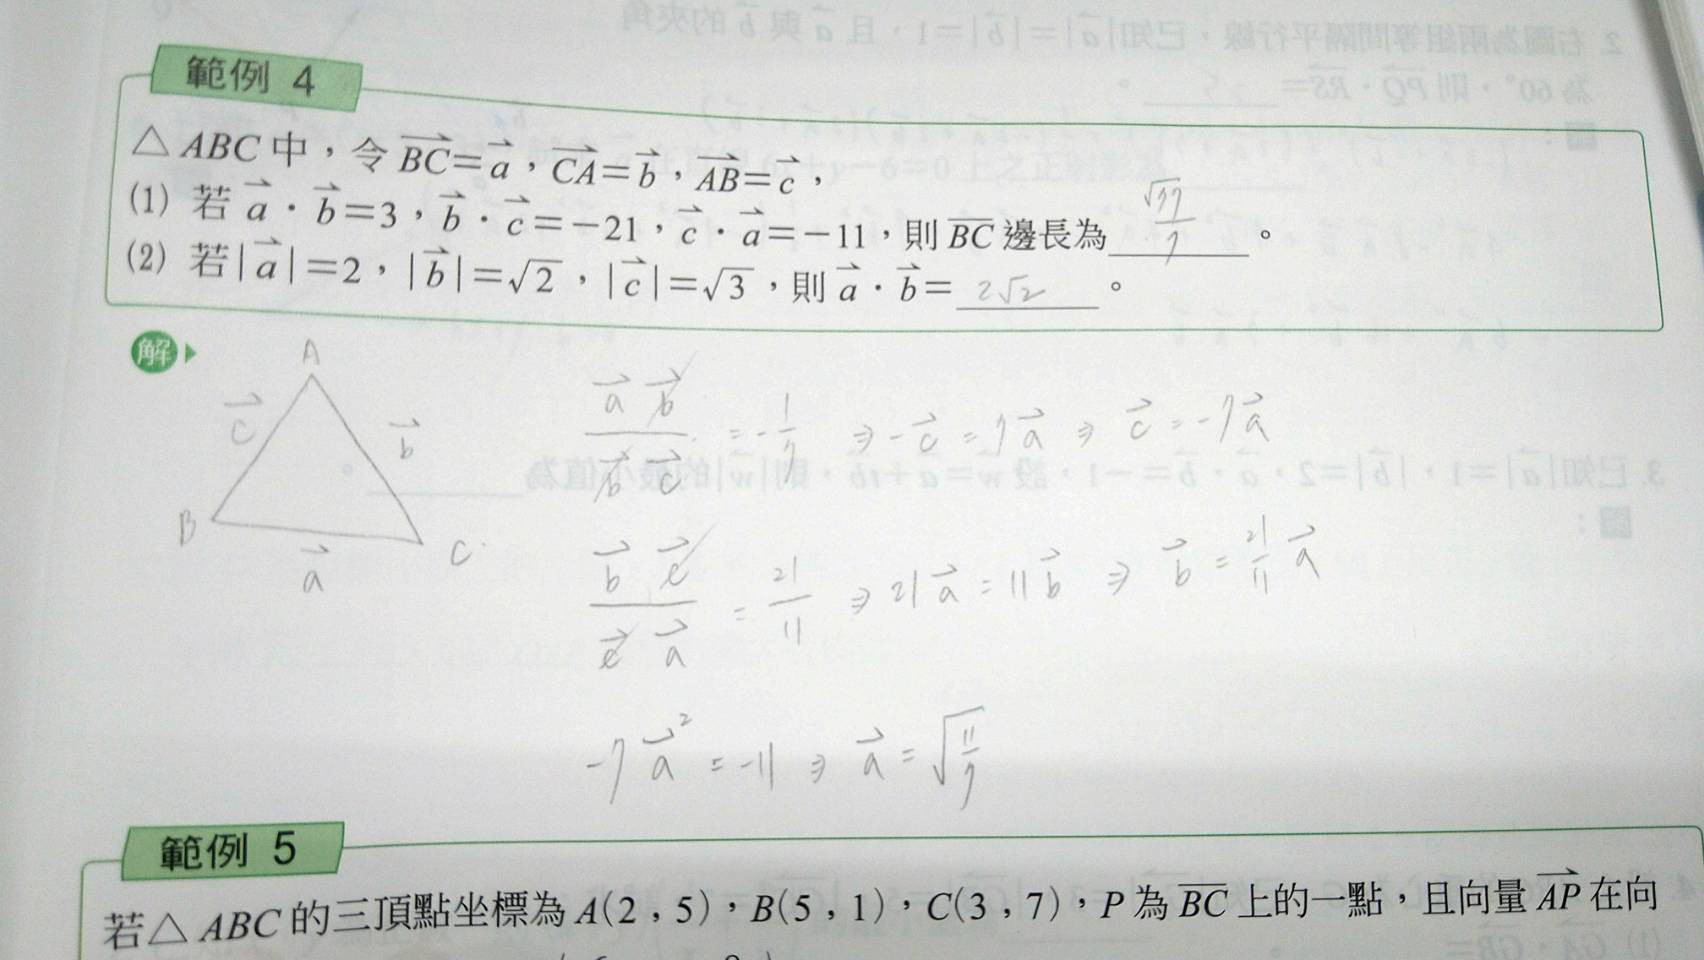 範例 4
△ABC 中，令 $\overrightarrow{BC}=\vec{a}$，$\overrightarrow{CA}=\vec{b}$，$\overrightarrow{AB}=\vec{c}$，
(1) 若 $\vec{a}\cdot\vec{b}=3$，$\vec{b}\cdot\vec{c}=-21$，$\vec{c}\cdot\vec{a}=-11$，則 $\overline{BC}$ 邊長為 $\frac{\sqrt{77}}{7}$ 。
(2) 若 $|\vec{a}|=2$，$|\vec{b}|=\sqrt{2}$，$|\vec{c}|=\sqrt{3}$，則 $\vec{a}\cdot\vec{b}=$ $2\sqrt{2}$ 。
解
A
$\vec{c}$
$\vec{b}$
B
C
$\vec{a}$
$\frac{\vec{a}\vec{b}}{\vec{b}\vec{c}}=-\frac{1}{7}$ ⇒ $-\vec{c}=7\vec{a}$ ⇒ $\vec{c}=-7\vec{a}$
$\frac{\vec{b}\vec{c}}{\vec{c}\vec{a}}=\frac{21}{11}$ ⇒ $21\vec{a}=11\vec{b}$ ⇒ $\vec{b}=\frac{21}{11}\vec{a}$
$-7\vec{a}^2=-11$ ⇒ $\vec{a}=\sqrt{\frac{11}{7}}$
範例 5
若△ABC 的三頂點坐標為 A(2，5)，B(5，1)，C(3，7)，P 為 $\overline{BC}$ 上的一點，且向量 $\overrightarrow{AP}$ 在向